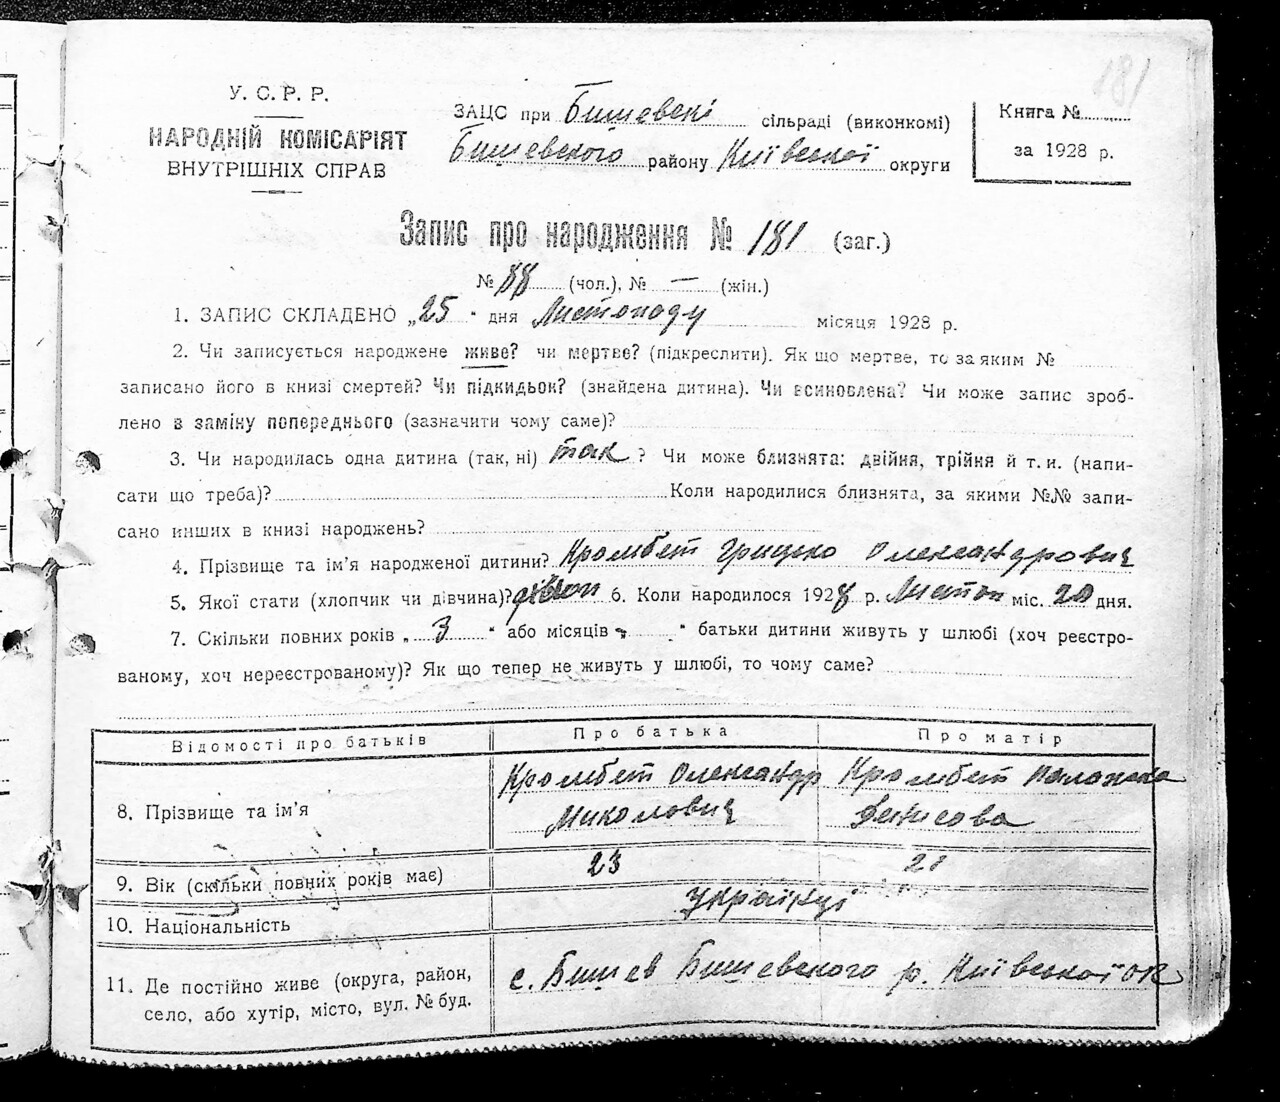 181
У. С. Р. Р.
НАРОДНІЙ КОМІСАРІЯТ
ВНУТРІШНІХ СПРАВ
ЗАЦС при Бишевскі сільраді (виконкомі)
Бишевского району Київської округи
Книга №
за 1928 р.
Запис про народження № 181 (заг.)
№ 88 (чол.), № — (жін.)
1. ЗАПИС СКЛАДЕНО „25" дня Листопаду місяця 1928 р.
2. Чи записується народжене живе? чи мертве? (підкреслити). Як що мертве, то за яким №
записано його в книзі смертей? Чи підкидьок? (знайдена дитина). Чи всиновлена? Чи може запис зроб-
лено в заміну попереднього (зазначити чому саме)?
3. Чи народилась одна дитина (так, ні) так? Чи може близнята: двійня, трійня й т. и. (напи-
сати що треба)? Коли народилися близнята, за якими №№ запи-
сано инших в книзі народжень?
4. Прізвище та ім'я народженої дитини? Кромбет Грицько Олександрович
5. Якої стати (хлопчик чи дівчина)? 6. Коли народилося 1928 р. Листоп міс. 20 дня.
7. Скільки повних років „ 3 " або місяців „ " батьки дитини живуть у шлюбі (хоч реєстро-
ваному, хоч нереєстрованому)? Як що тепер не живуть у шлюбі, то чому саме?
Відомості про батьків Про батька Про матір
8. Прізвище та ім'я Кромбет Олександр Миколович Кромбет Палажка Денисова
9. Вік (скільки повних років має) 23 21
10. Національність Українці
11. Де постійно живе (округа, район,
село, або хутір, місто, вул. № буд. с. Бишев Бишевского р. Київської ок